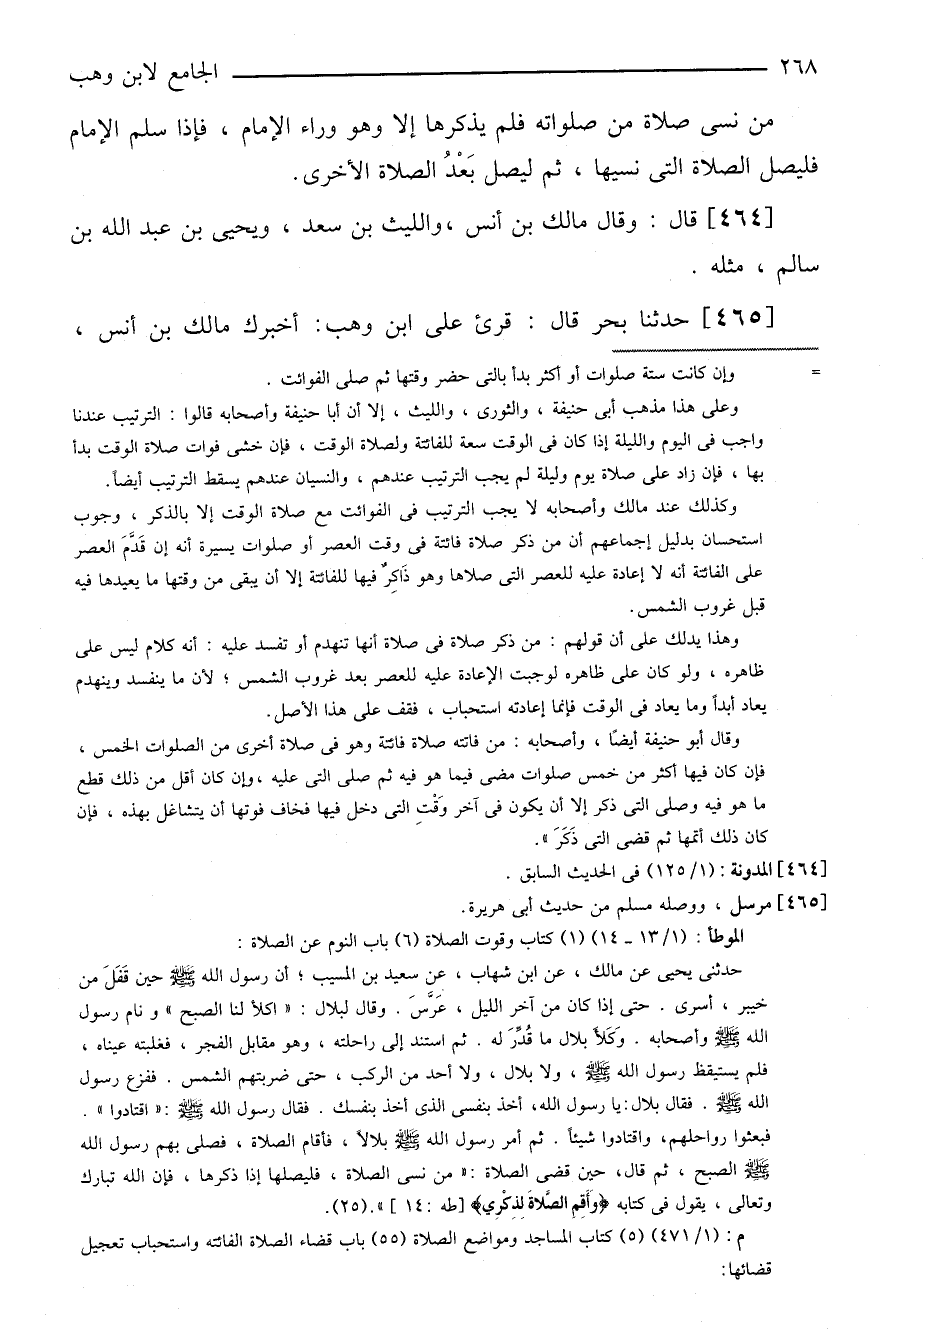 ٢٦٨ الجامع لابن وهب
من نسى صلاة من صلواته فلم يذكرها إلا وهو وراء الإمام ، فإذا سلم الإمام
فليصل الصلاة التى نسيها ، ثم ليصل بَعْدُ الصلاة الأخرى.
[٤٦٤] قال : وقال مالك بن أنس ،والليث بن سعد ، ويحيى بن عبد الله بن
سالم ، مثله .
[٤٦٥] حدثنا بحر قال : قرئ على ابن وهب: أخبرك مالك بن أنس ،
= وإن كانت ستة صلوات أو أكثر بدأ بالتى حضر وقتها ثم صلى الفوائت .
وعلى هذا مذهب أبى حنيفة ، والثورى ، والليث ، إلا أن أبا حنيفة وأصحابه قالوا : الترتيب عندنا
واجب فى اليوم والليلة إذا كان فى الوقت سعة للفائتة ولصلاة الوقت ، فإن خشى فوات صلاة الوقت بدأ
بها ، فإن زاد على صلاة يوم وليلة لم يجب الترتيب عندهم ، والنسيان عندهم يسقط الترتيب أيضاً.
وكذلك عند مالك وأصحابه لا يجب الترتيب فى الفوائت مع صلاة الوقت إلا بالذكر ، وجوب
استحسان بدليل إجماعهم أن من ذكر صلاة فائتة فى وقت العصر أو صلوات يسيرة أنه إن قَدَّمَ العصر
على الفائتة أنه لا إعادة عليه للعصر التى صلاها وهو ذَاكِرٌ فيها للفائتة إلا أن يبقى من وقتها ما يعيدها فيه
قبل غروب الشمس.
وهذا يدلك على أن قولهم : من ذكر صلاة فى صلاة أنها تنهدم أو تفسد عليه : أنه كلام ليس على
ظاهره ، ولو كان على ظاهره لوجبت الإعادة عليه للعصر بعد غروب الشمس ؛ لأن ما ينفسد وينهدم
يعاد أبداً وما يعاد فى الوقت فإنما إعادته استحباب ، فقف على هذا الأصل.
وقال أبو حنيفة أيضًا ، وأصحابه : من فاتته صلاة فائتة وهو فى صلاة أخرى من الصلوات الخمس ،
فإن كان فيها أكثر من خمس صلوات مضى فيما هو فيه ثم صلى التى عليه ،وإن كان أقل من ذلك قطع
ما هو فيه وصلى التى ذكر إلا أن يكون فى آخر وَقْتِ التى دخل فيها فخاف فوتها أن يتشاغل بهذه ، فإن
كان ذلك أتمها ثم قضى التى ذَكَرَ ».
[٤٦٤] المدونة : (١/ ١٢٥) فى الحديث السابق .
[٤٦٥] مرسل ، ووصله مسلم من حديث أبى هريرة.
الموطأ : (١/ ١٣ ـ ١٤) (١) كتاب وقوت الصلاة (٦) باب النوم عن الصلاة :
حدثنى يحيى عن مالك ، عن ابن شهاب ، عن سعيد بن المسيب ؛ أن رسول الله ﷺ حين قَفَلَ من
خيبر ، أسرى . حتى إذا كان من آخر الليل ، عَرَّسَ . وقال لبلال : « اكلأ لنا الصبح » و نام رسول
الله ﷺ وأصحابه . وَكَلأَ بلال ما قُدِّرَ له . ثم استند إلى راحلته ، وهو مقابل الفجر ، فغلبته عيناه ،
فلم يستيقظ رسول الله ﷺ ، ولا بلال ، ولا أحد من الركب ، حتى ضربتهم الشمس . ففزع رسول
الله ﷺ . فقال بلال:يا رسول الله، أخذ بنفسى الذى أخذ بنفسك . فقال رسول الله ﷺ :« اقتادوا » .
فبعثوا رواحلهم، واقتادوا شيئاً . ثم أمر رسول الله ﷺ بلالاً ، فأقام الصلاة ، فصلى بهم رسول الله
ﷺ الصبح ، ثم قال، حين قضى الصلاة :« من نسى الصلاة ، فليصلها إذا ذكرها ، فإن الله تبارك
وتعالى ، يقول فى كتابه ﴿وأَقِمِ الصَّلاةَ لِذِكْرِي﴾ [طه :١٤ ] ».(٢٥).
م : (١/ ٤٧١) (٥) كتاب المساجد ومواضع الصلاة (٥٥) باب قضاء الصلاة الفائته واستحباب تعجيل
قضائها: